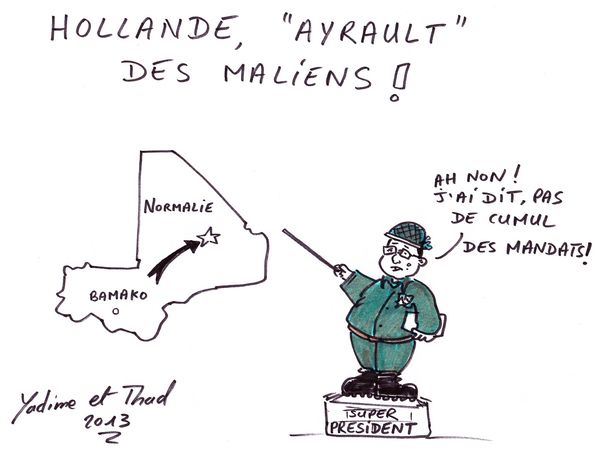 HOLLANDE, "AYRAULT"
DES MALIENS !
NORMALIE
BAMAKO
AH NON !
J'AI DIT, PAS
DE CUMUL
DES MANDATS !
SUPER
PRESIDENT
Yadime et Thad
2013